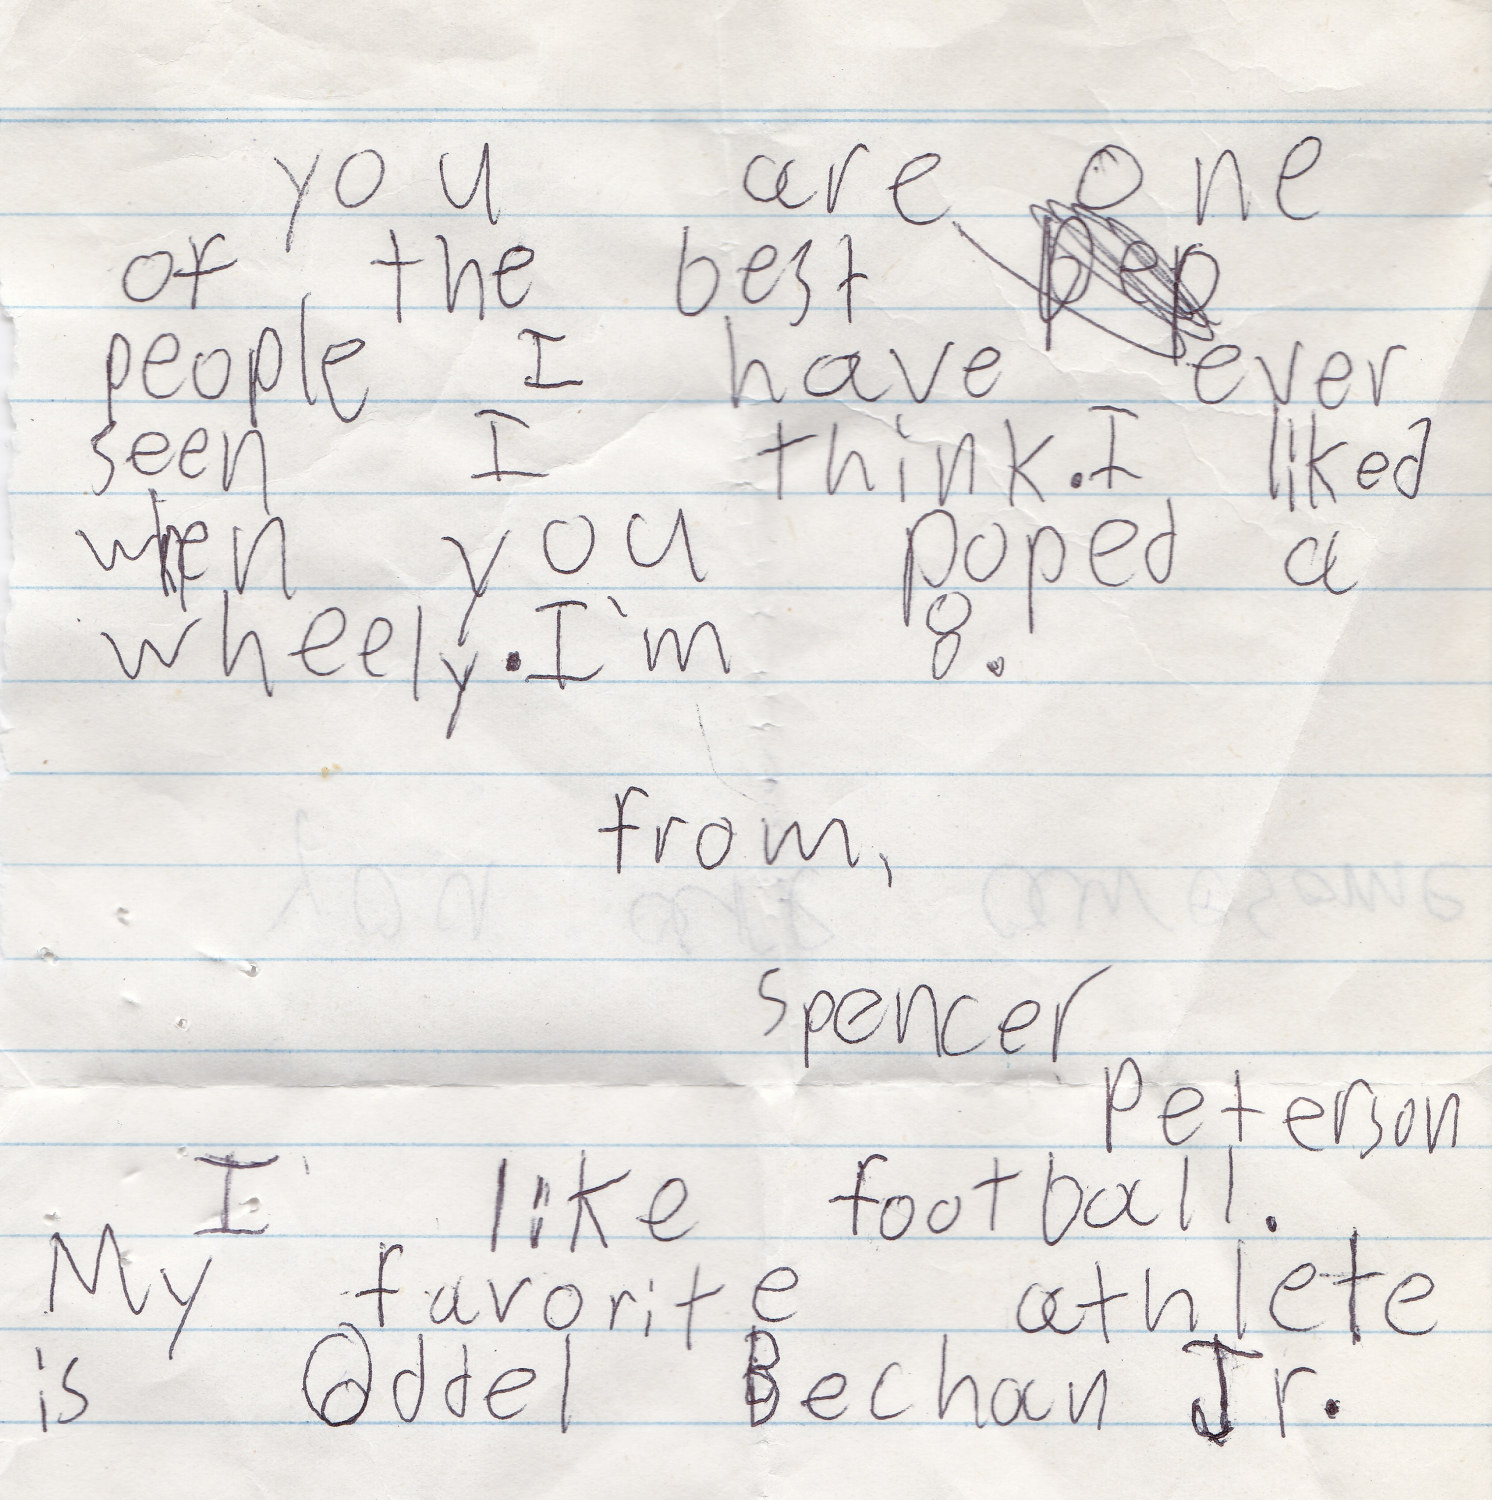 you are one
of the best
people I have ever
seen I think. I liked
when you poped a
wheely. I'm 8.
from,
Spencer
Peterson
I like football.
My favorite athlete
is Oddel Bechan Jr.